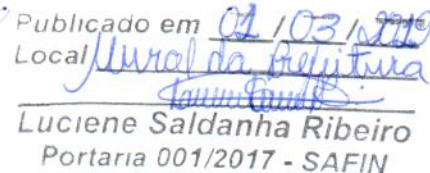 Publicado em 01 / 03 / 2019
Local Mural da Prefeitura
Luciene Saldanha Ribeiro
Portaria 001/2017 - SAFIN